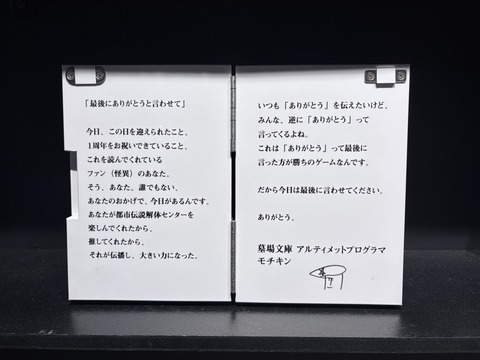 「最後にありがとうと言わせて」
今日、この日を迎えられたこと。
1周年をお祝いできていること。
これを読んでくれている
ファン（怪異）のあなた。
そう、あなた。誰でもない、
あなたのおかげで、今日があるんです。
あなたが都市伝説解体センターを
楽しんでくれたから、
推してくれたから、
それが伝播し、大きい力になった。
いつも「ありがとう」を伝えたいけど、
みんな、逆に「ありがとう」って
言ってくるよね。
これは「ありがとう」って最後に
言った方が勝ちのゲームなんです。
だから今日は最後に言わせてください。
ありがとう。
墓場文庫 アルティメットプログラマ
モチキン